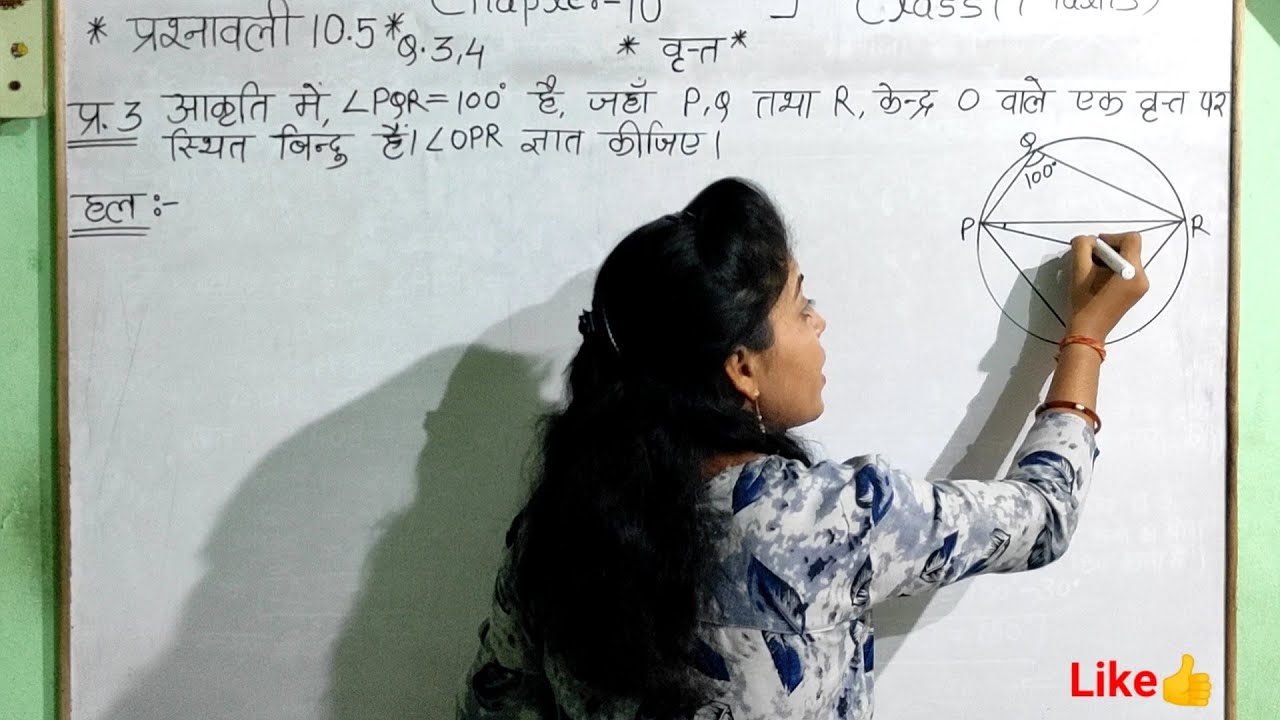 Chapter:-10
Class
* प्रश्नावली 10.5 *
Q.3,4
* वृत्त *
प्र.3 आकृति में, ∠PQR=100° है, जहाँ P,Q तथा R, केन्द्र O वाले एक वृत्त पर
स्थित बिन्दु हैं। ∠OPR ज्ञात कीजिए।
हल :-
Q
100°
P
R
Like👍